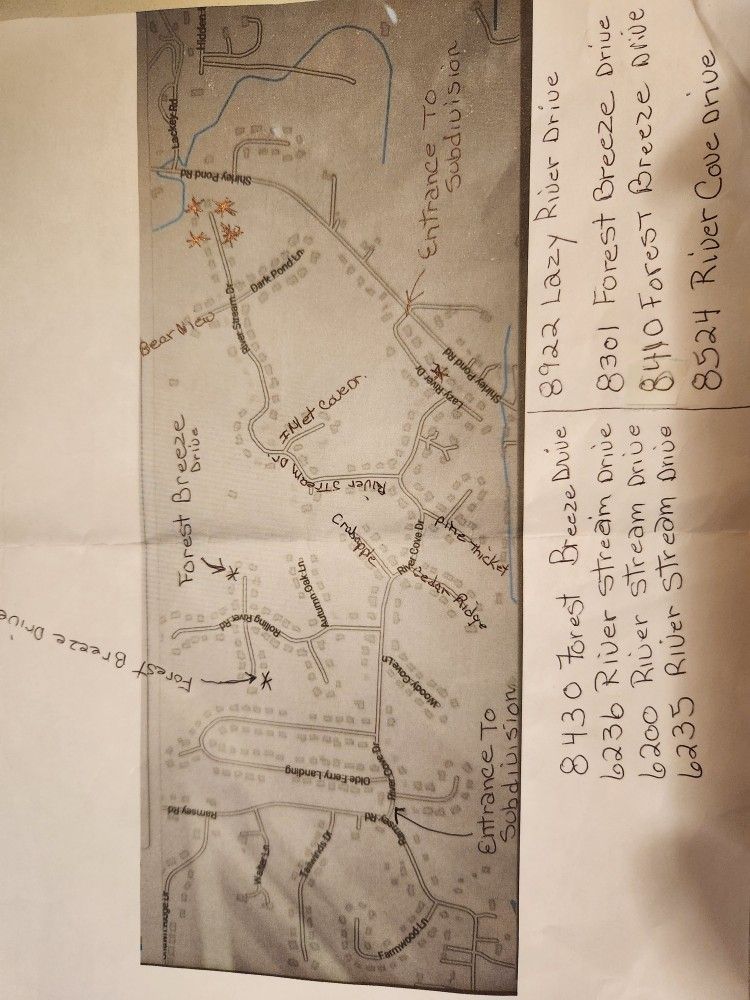 8922 Lazy River Drive
8301 Forest Breeze Drive
8410 Forest Breeze Drive
8524 River Cove Drive
8430 Forest Breeze Drive
6236 River Stream Drive
6200 River Stream Drive
6235 River Stream Drive
Entrance To
Subdivision
Entrance To
Subdivision
Forest Breeze
Drive
Forest Breeze Drive
Bear View
Inlet Cove Dr.
River Stream Dr.
Crabapple
Pine Thicket
Cedar Ridge
Hidden
Lackey Rd
Shirley Pond Rd
River Stream Dr
Dark Pond Ln
Lazy River Dr
Shirley Pond Rd
River Cove Dr
Autumn Oak Ln
Rolling River Rd
Woody Cove Ln
Olde Ferry Landing
River Cove Dr
River Cove Dr
Ramsey Rd
Ramsey Rd
Walter Ln
Tailwinds Dr
Farmwood Ln